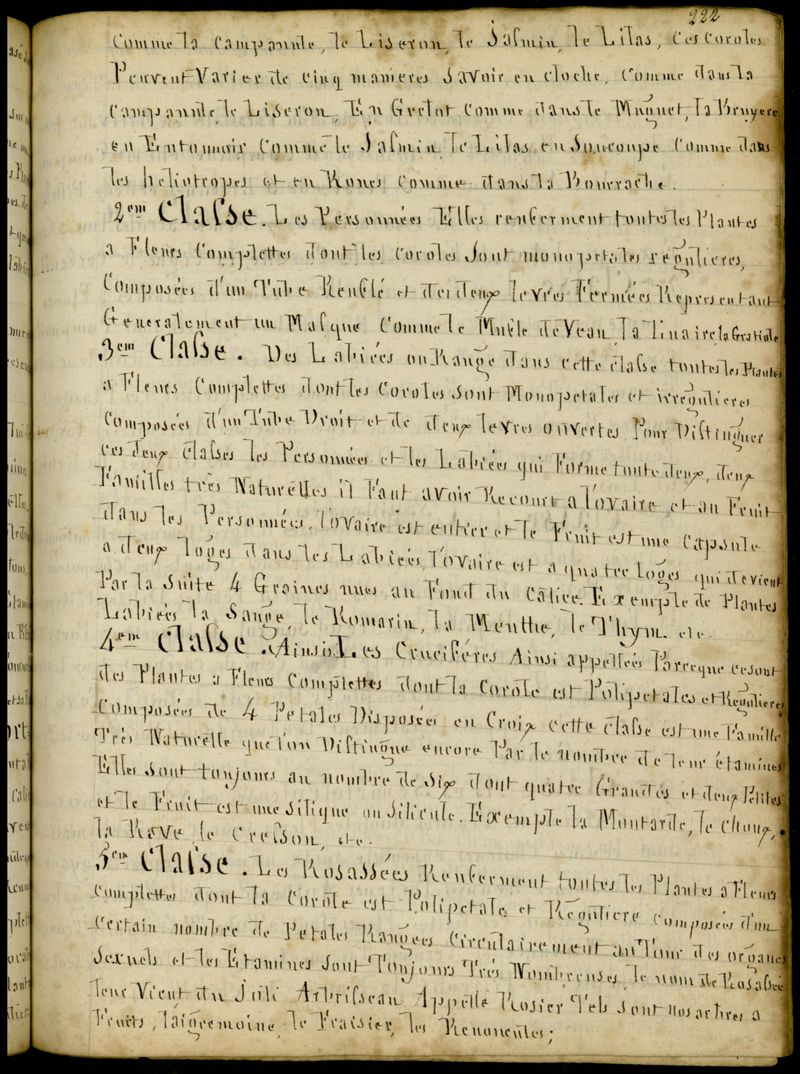 222
Comme la Campanule, le Liseron, le Jasmin, le Lilas, Ces Coroles
Peuvent Varier de cinq manieres Savoir en cloche, Comme dans la
Campanule le Liseron, En Grelot Comme dans le Muguet, la Bruyere
en Entonnoir Comme le Jasmin, le Lilas, en Soucoupe Comme dans
les heliotropes et en Roues Comme dans la Bourrache.
2em Classe. Les Personnées Elles renferment toutes les Plantes
a Fleurs Complettes dont les Coroles Sont monopetales régulieres,
Composées d'un Tube Renflé et de deux levres Fermées Representant
Generalement un Masque Comme le Mufle de Veau, la linaire la Gratiole
3em Classe. Des Labiées on Range dans cette classe toutes les Plantes
a Fleurs Complettes dont les Coroles Sont Monopetales et irregulieres
Composées d'un Tube Droit et de deux levres ouvertes Pour Distinguer
ces deux classes les Personnées et les Labiées qui Forme toute deux, deux
Familles très Naturelles il Faut avoir Recours a l'ovaire et au Fruit
dans les Personnées, l'ovaire est entier et le Fruit est une Capsule
a deux loges dans les Labiées, l'ovaire est a quatre Loges qui devient
Par la Suite 4 Graines nues au Fond du Calice. Exemple de Plantes
Labiées la Sauge, le Romarin, la Menthe, le Thym etc.
4em Classe. Ainsi Les Cruciféres Ainsi appellées Parceque ce sont
des Plantes a Fleurs Complettes dont la Corole est Polipetales et Régulieres
Composées de 4 Petales Disposées en Croix cette classe est une Famille
Très Naturelle que l'on Distingue encore Par le nombre de leur étamines
Elles Sont toujours au nombre de Six dont quatre Grandes et deux Petites
et le Fruit est une Silique ou Silicule. Exemple la Moutarde, le choux,
la Rave, le Cresson, etc.
5em Classe. Les Rosassées Renferment toutes les Plantes a Fleurs
Complettes dont la Corole est Polipetale et Réguliere Composées d'un
Certain nombre de Petales Rangées Circulairement au Tour des organes
Sexuels et les Etamines Sont Toujours Très Nombreuses, le nom de Rosassées
leur Vient du Joli Arbrisseau Appellé Rosier Tels Sont nos arbres a
Fruits, laigremoine, le Fraisier, les Renoncules;